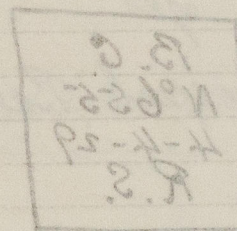 B. C
Nº 655
4-4-29
R.S.